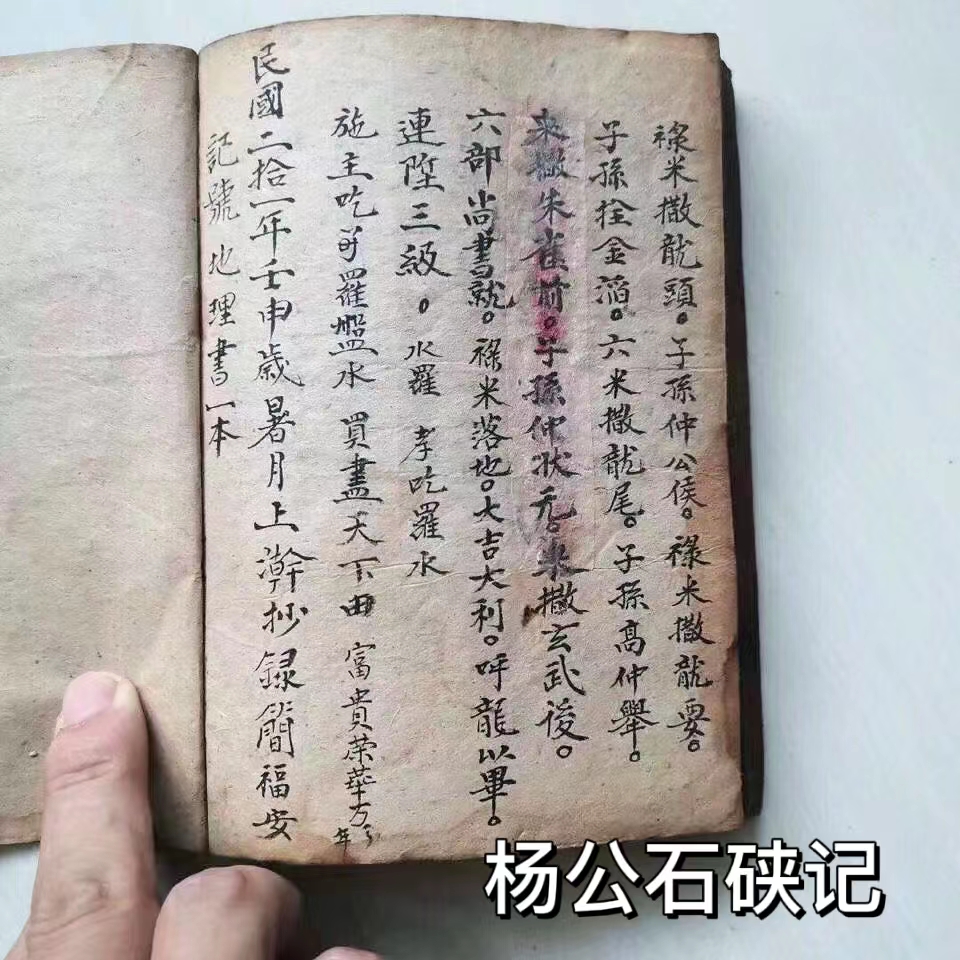 祿米撒龍頭。子孫仲公侯。祿米撒龍要。
子孫拴金滔。六米撒龍尾。子孫高仲舉。
来撒朱雀前。子孫仲状元。来撒玄武後。
六部尚書就。祿米落地。大吉大利。呼龍以畢。
連陞三級。水羅 孝吃羅水
施主吃羅盤水 買盡天下田 富貴榮華万年
民國二拾一年壬申歲暑月上澣抄録簡福安
記號地理書一本
杨公石硖记